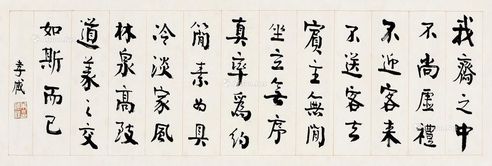 我齋之中
不尚虛禮
不迎客來
不送客去
賓主無間
坐立無序
真率為約
簡素為具
冷淡家風
林泉高致
道義之交
如斯而已
李盛